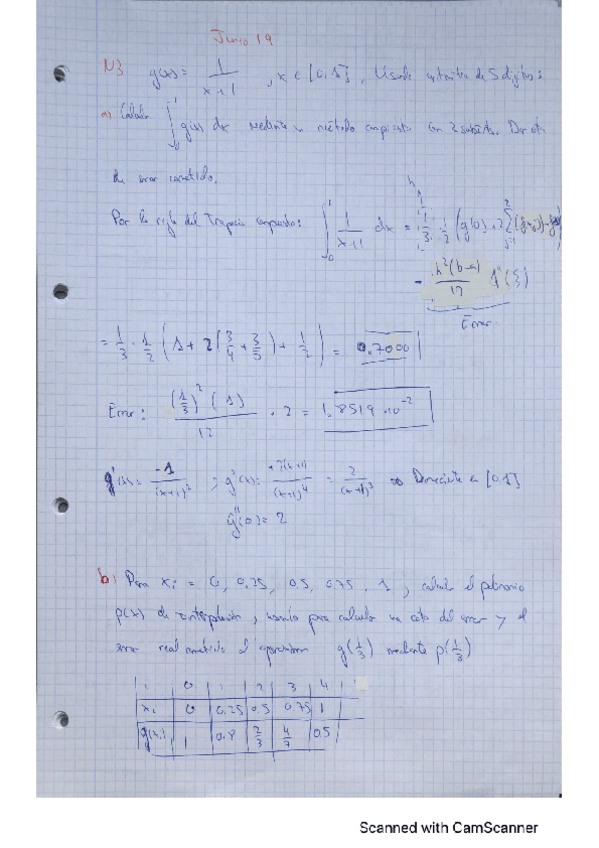 Junio 19
N3 g(x) = 1/(x+1) , x ∈ [0,1]. Usando aritmética de 5 dígitos:
a) Calcular ∫₀¹ g(x) dx mediante un método compuesto con 2 subint. Dar cota
del error cometido.
Por la regla del Trapecio compuesto: ∫₀¹ 1/(x+1) dx = 1/3 · 1/2 (g(0) + 2
- h²(b-a)/12 f''(ξ)
Error
= 1/3 · 1/2 (1 + 2(3/4 + 3/5) + 1/2) = 0.7000
Error: (1/3)² (1)/12 · 2 = 1.8519·10⁻²
g'(x) = -1/(x+1)² ; g''(x) = +2(x+1)/(x+1)⁴ = 2/(x+1)³ => Decreciente en [0,1]
g''(0) = 2
b) Para xi = 0, 0,25, 0,5, 0,75, 1 ; calcular el polinomio
p(x) de interpolación, usarlo para calcular una cota del error y el
error real cometido al aproximar g(1/3) mediante p(1/3)
i 0 1 2 3 4
xi 0 0.25 0.5 0.75 1
g(xi) 1 0.8 2/3 4/7 0.5
Scanned with CamScanner